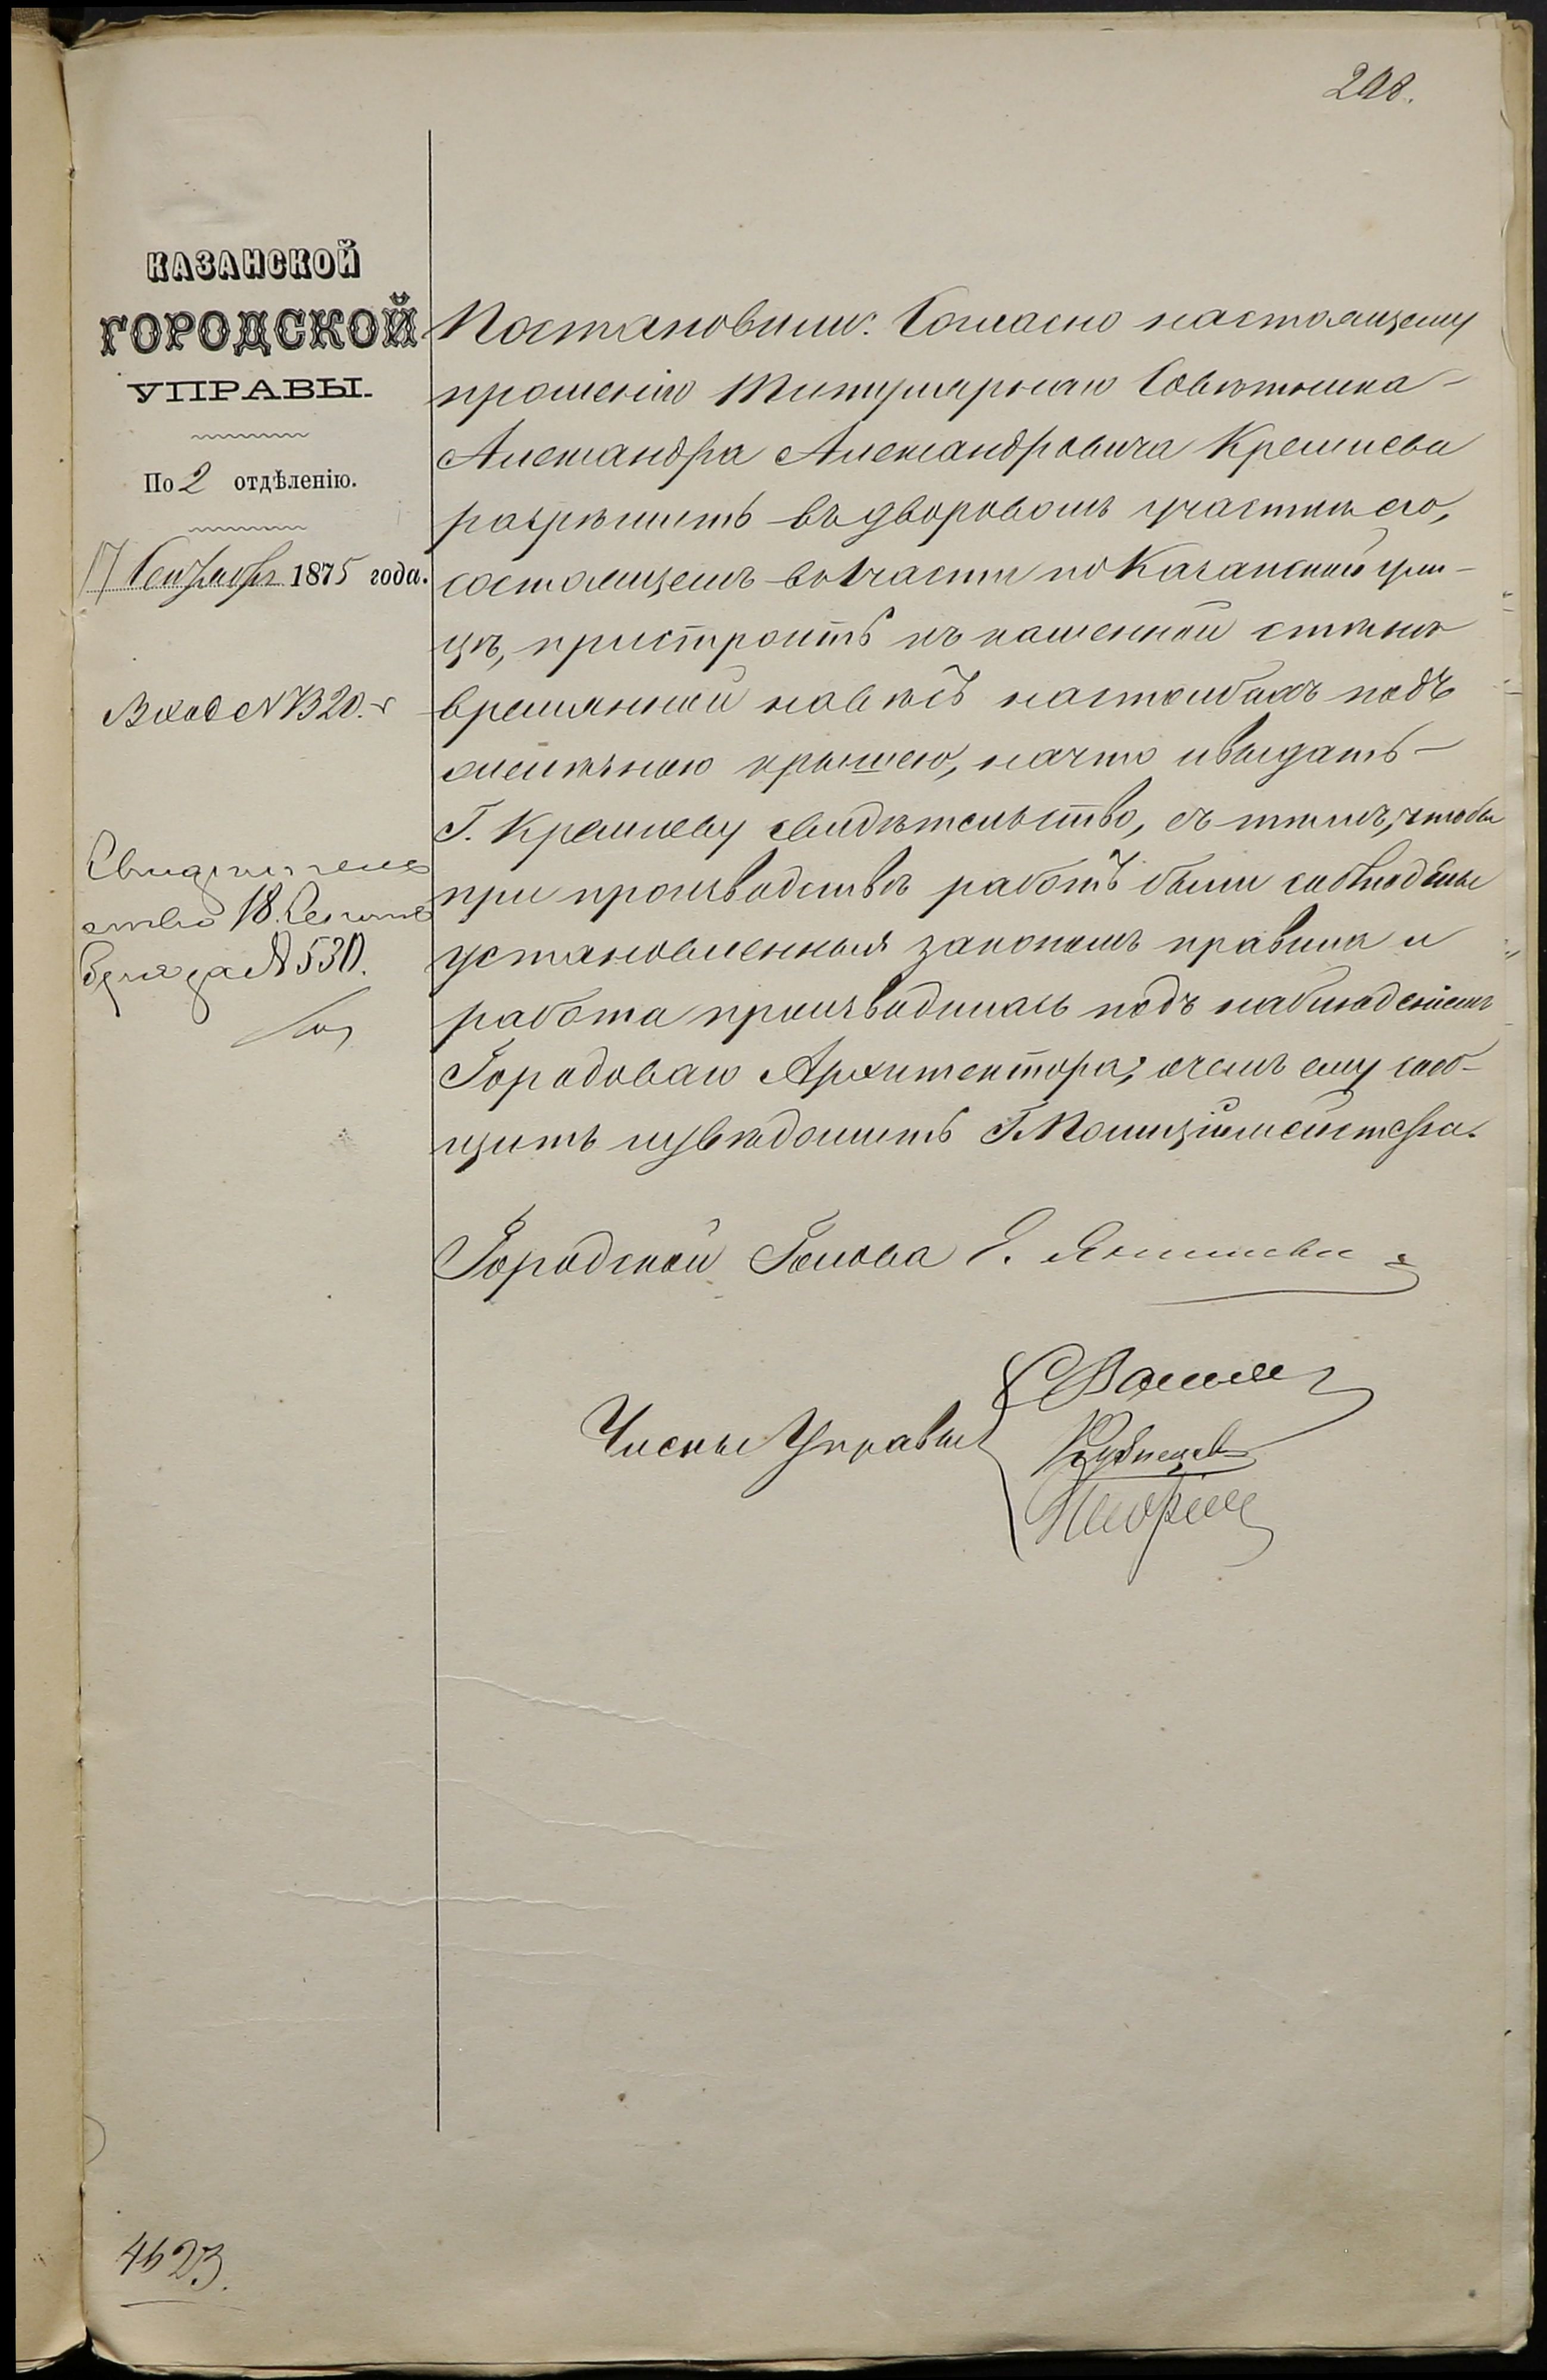 208.
КАЗАНСКОЙ
ГОРОДСКОЙ
УПРАВЫ.
По 2 отдѣленію.
17 Сентября 1875 года.
Вход № 7320.
Свидѣтель
ство 18. Сентя
бря за № 530.
Постановили: Согласно настоящему
прошенію Титулярнаго Совѣтника
Александра Александровича
разрѣшить въ дворовомъ участкѣ его,
состоящемъ во части по Казанской ули-
цѣ, пристроить къ каменной стѣнѣ
временной навѣсъ на столбахъ подъ
желѣзною крышею, на что и выдать
Г. свидѣтельство, съ тѣмъ, чтобы
при производствѣ работъ были соблюдены
установленныя закономъ правила и
работа производилась подъ наблюденіемъ
Городоваго Архитектора, о чемъ ему сооб-
щить и увѣдомить Г. Полиціймейстера.
Городской Голова Э. Янишевскій
Члены Управы
Кузнецов
4623.